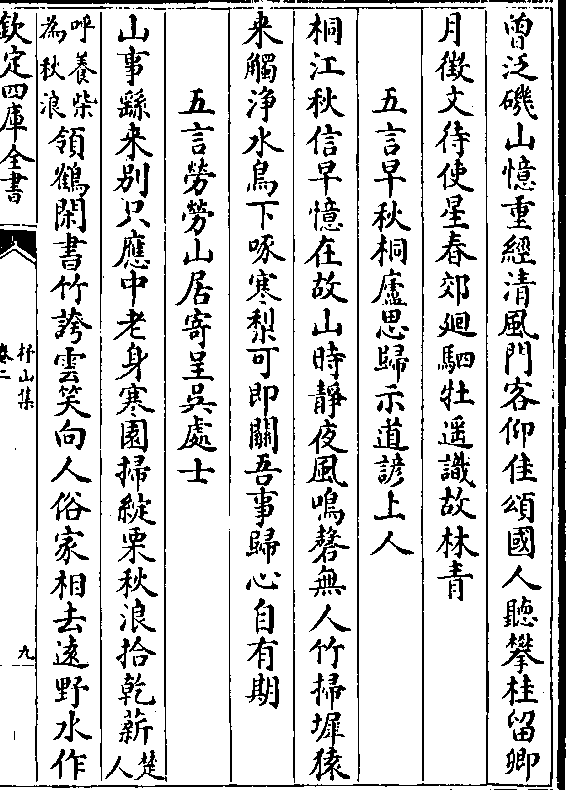 曽泛磯山憶重經清風門客仰佳頌國人聽攀桂留卿
月徴文待使星春郊廻駟牡遥識故林青
五言早秋桐廬思歸示道諺上人
桐江秋信早憶在故山時靜夜風鳴磬無人竹掃墀猿
来觸浄水鳥下啄寒梨可即關吾事歸心自有期
五言勞勞山居寄呈吳處士
山事繇来别只應中老身寒園掃綻栗秋浪拾乾薪楚人
呼養柴為秋浪領鶴閑書竹誇雲笑向人俗家相去遠野水作
欽定四庫全書
杼山集
卷二
九